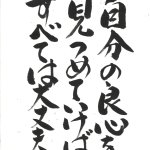 自分の良心を
見つめてけば
すべては大丈夫